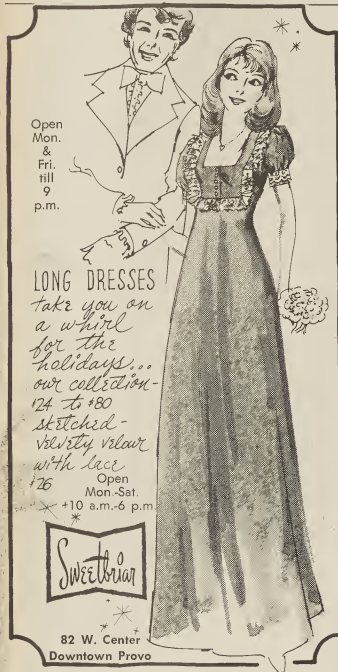 Open
Mon.
&
Fri.
till
9
p.m.
LONG DRESSES
take you on
a whirl
for the
holidays...
our collection-
$24 to $80
sketched-
velvety velour
with lace
$26
Open
Mon.-Sat.
+10 a.m.-6 p.m.
Sweetbriar
82 W. Center
Downtown Provo